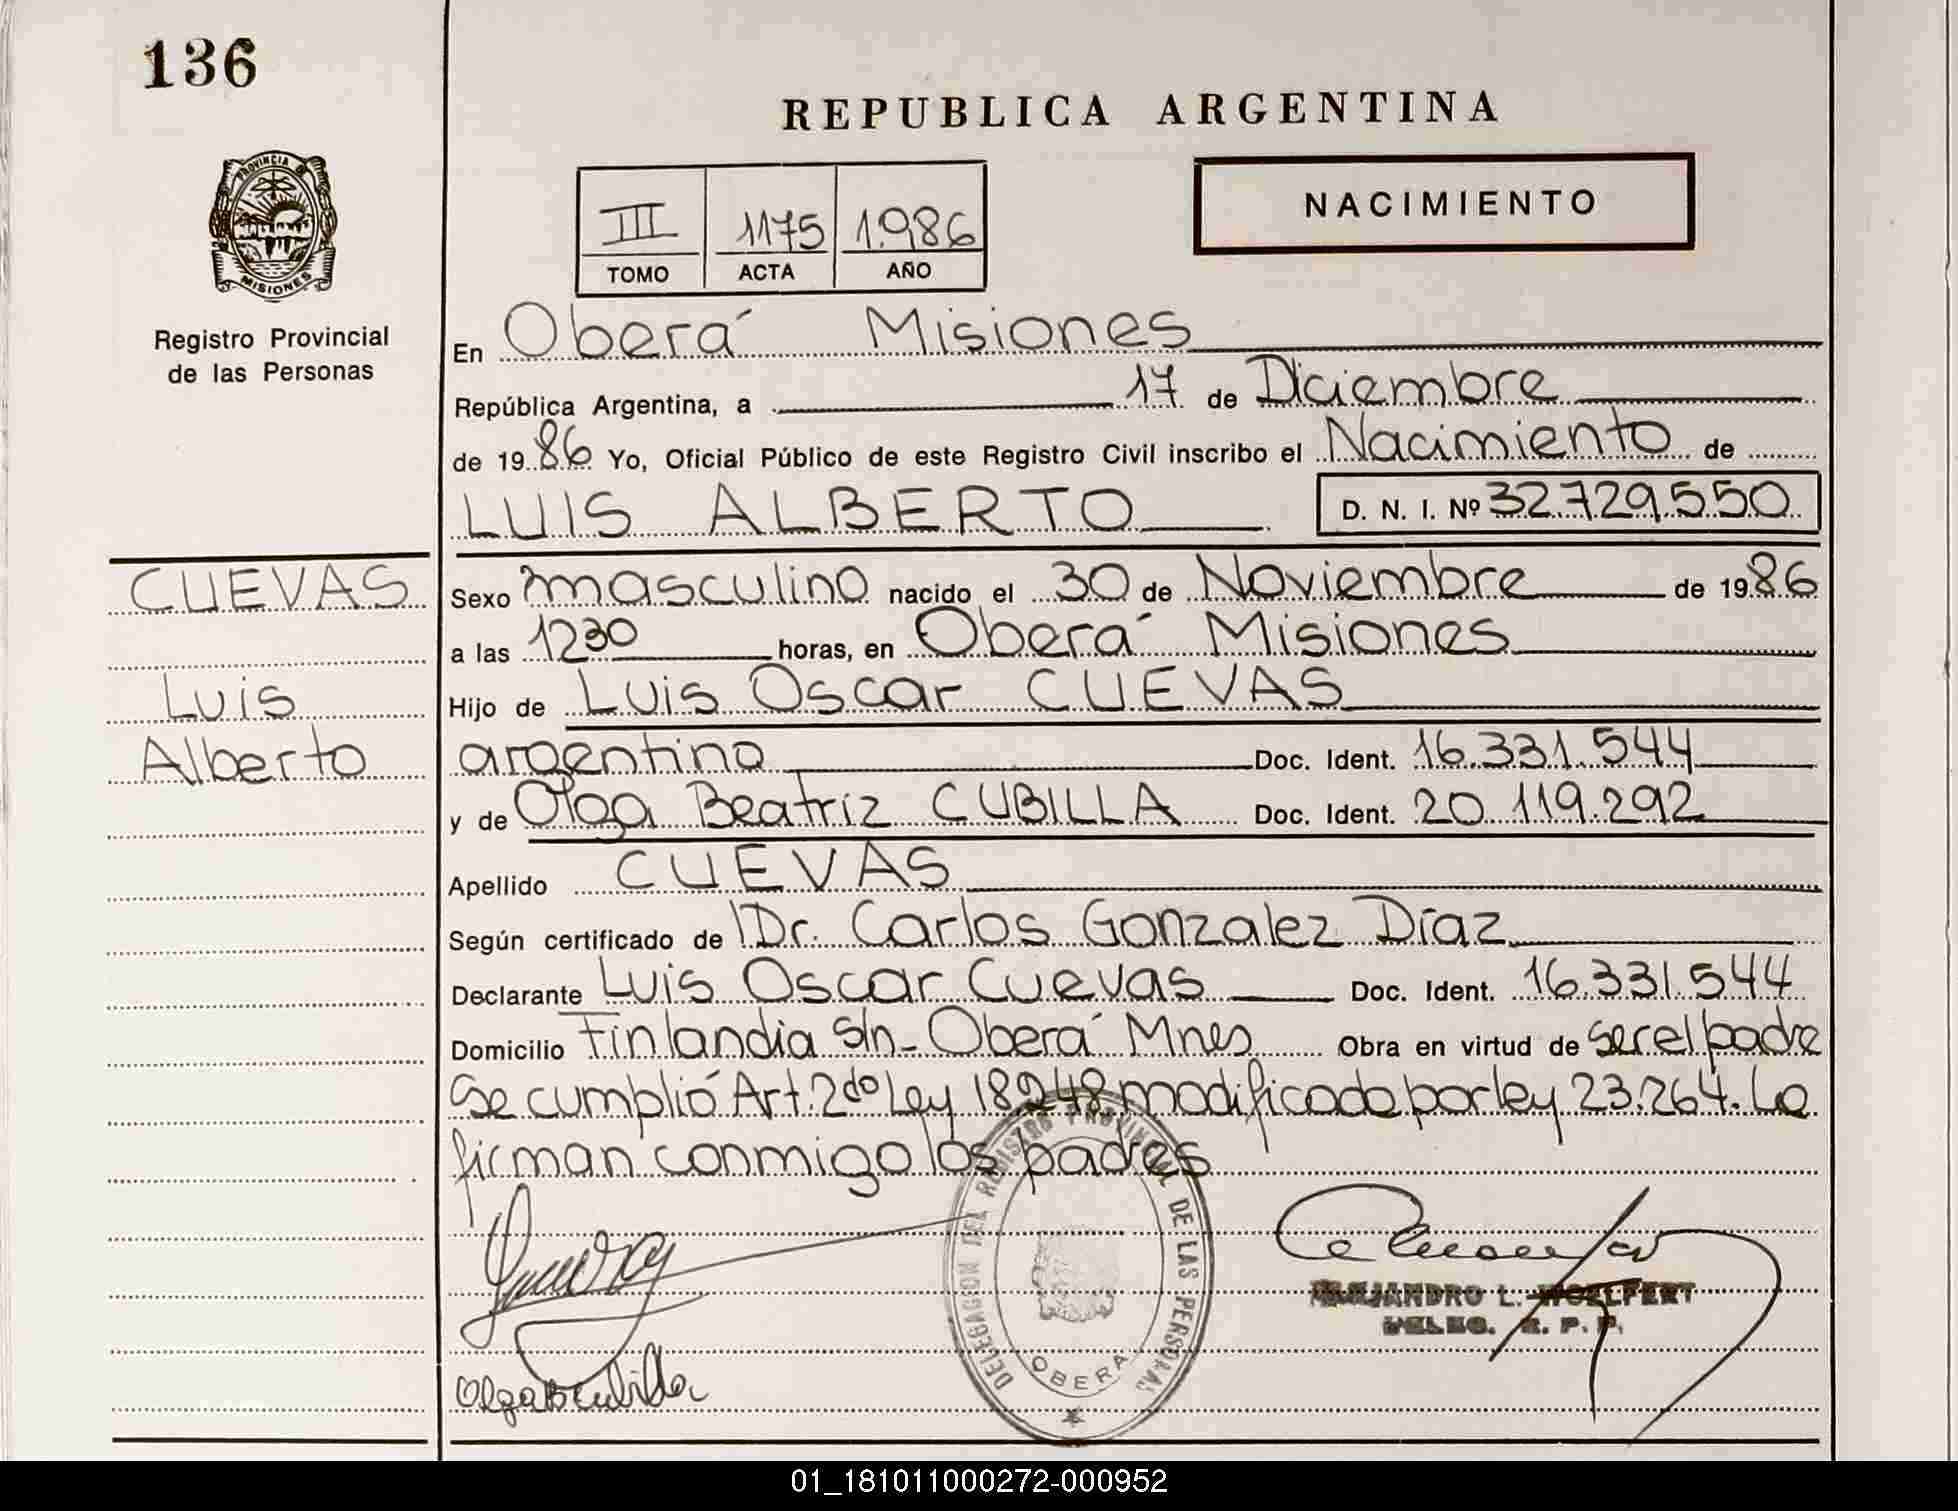 136
REPUBLICA ARGENTINA
PROVINCIA DE
MISIONES
III 1175 1.986
TOMO ACTA AÑO
NACIMIENTO
Registro Provincial
de las Personas
En Oberá Misiones
República Argentina, a 17 de Diciembre
de 1986 Yo, Oficial Público de este Registro Civil inscribo el Nacimiento de
LUIS ALBERTO D. N. I. Nº 32.729.550
CUEVAS
Luis
Alberto
Sexo masculino nacido el 30 de Noviembre de 1986
a las 1230 horas, en Oberá Misiones
Hijo de Luis Oscar CUEVAS
argentino Doc. Ident. 16.331.544
y de Olga Beatriz CUBILLA Doc. Ident. 20.119.292
Apellido CUEVAS
Según certificado de Dr. Carlos Gonzalez Díaz
Declarante Luis Oscar Cuevas Doc. Ident. 16.331.544
Domicilio Finlandia s/n- Oberá Mnes Obra en virtud de ser el padre
Se cumplió Art. 2do Ley 18248 modificada por ley 23.264. La
firman conmigo los padres
DELEGACION DEL REGISTRO PROVINCIAL DE LAS PERSONAS
OBERA
ALEJANDRO L. WOELFERT
DELEG. R. P. P.
Olga B Cubilla
01_181011000272-000952